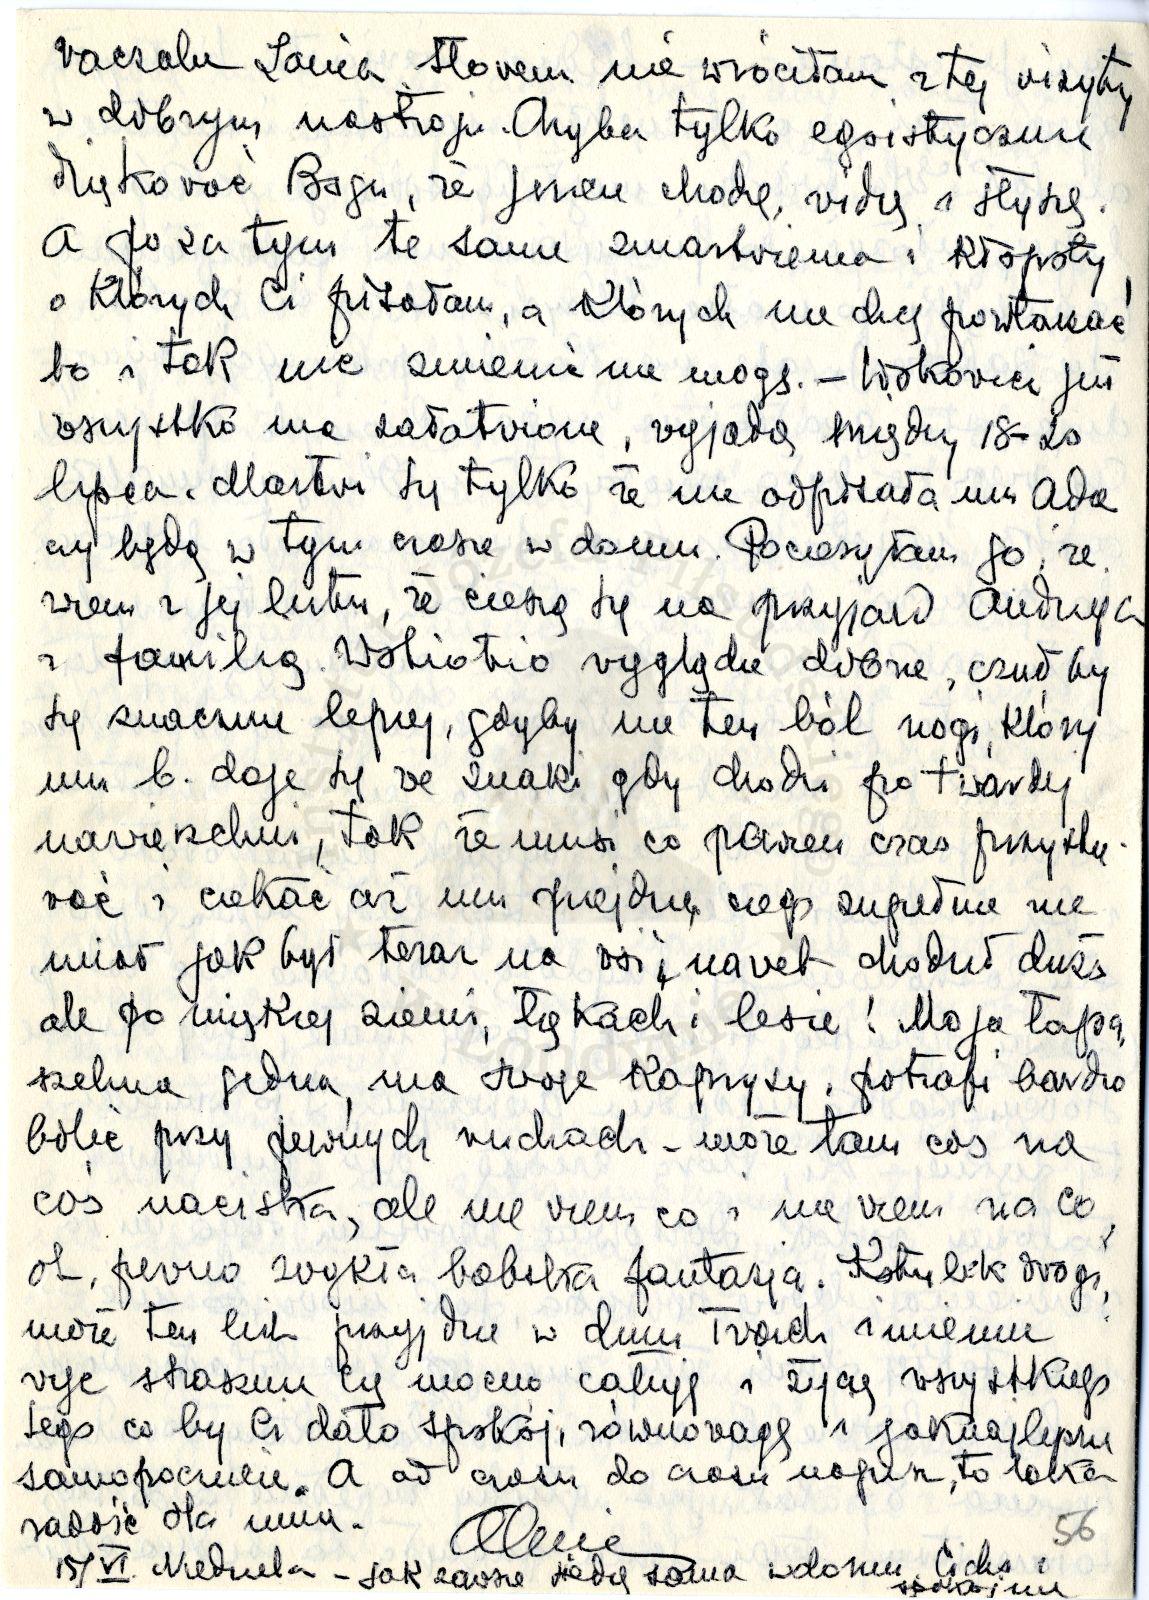 Słowem nie wróciłam z tej wizyty
w dobrym nastroju. Chyba tylko egoistycznie
dziękować Bogu, że jeszcze chodzę, widzę i słyszę.
A poza tym te same zmartwienia i kłopoty,
o których Ci pisałam, a których nie chcę powtarzać
bo i tak nic zmienić nie mogę. – już
wszystko ma załatwione, wyjadą między 18-20
lipca. Martwi się tylko że nie odpisała mu Ada
czy będą w tym czasie w domu. Pocieszyłam go, że
wiem z jej listu, że cieszą się na przyjazd Andrzeja
z familią. wygląda dobrze, czuł by
się znacznie lepiej, gdyby nie ten ból nogi, który
mu b. daje się we znaki gdy chodzi po twardej
nawierzchni, tak że musi co pewien czas przysta-
wać i czekać aż mu przejdzie, czego zupełnie nie
miał jak był teraz na wsi, a nawet chodził dużo
ale po miękkiej ziemi, łąkach i lesie! Moja łapa,
szelma jedna, ma swoje kaprysy, potrafi bardzo
boleć przy pewnych ruchach – może tam coś na
coś naciska, ale nie wiem co i nie wiem na co,
ot, pewno zwykła babska fantazja. drogi,
może ten list przyjdzie w dniu Twoich imienin
więc strasznie Cię mocno całuję i życzę wszystkiego
tego co by Ci dało spokój, równowagę i jaknajlepsze
samopoczucie. A od czasu do czasu napisz, to taka
radość dla mnie.
56
15/VI. Niedziela – jak zawsze siedzę sama w domu. Cicho i
spokojnie